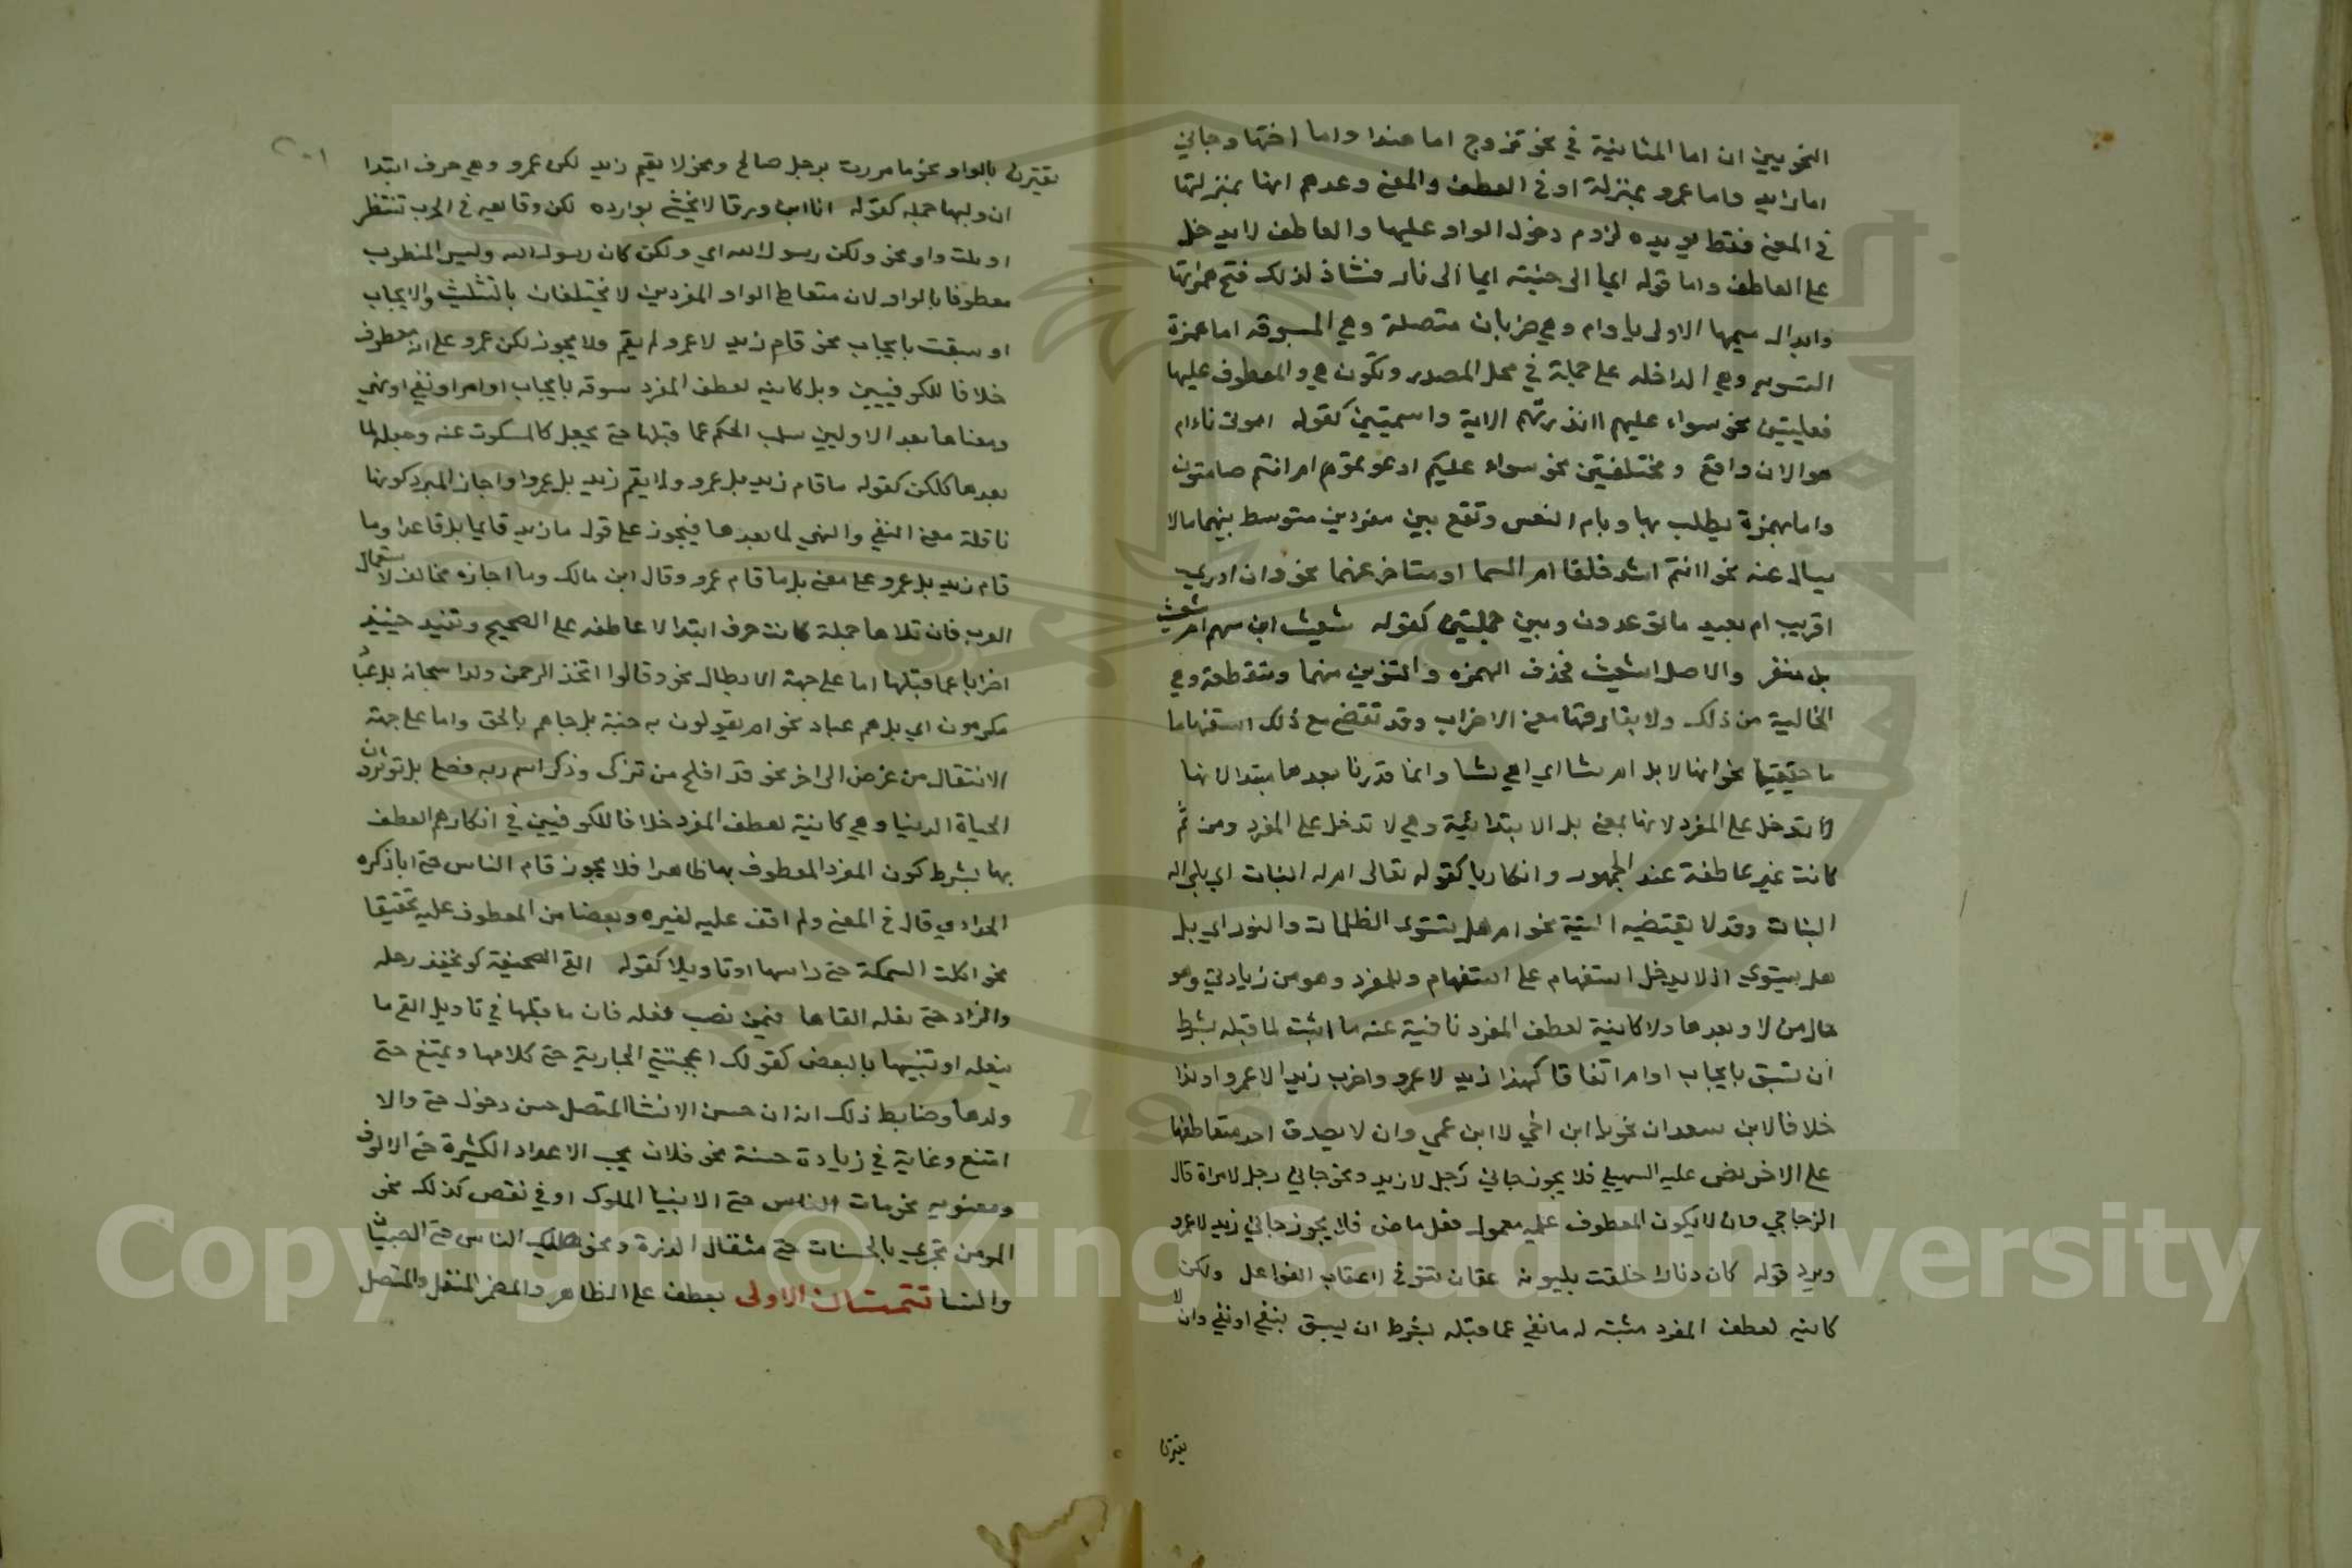 النحويين ان اما الثانية في نحو تزوج اما هندا واما اختها وجاني
اما زايد واما عمرو بمنزلة او في العطف والمعنى وعدهم انها بمنزلتها
في المعنى فقط يويده لزوم دخول الواو عليها والعاطف لا يدخل
على العاطف واما قوله ايما الى جنته ايما الى نار فشاذ لذلك فتح همزتها
وابدال ميمها الاولى يا وام وهي ضربان متصلة وهي المسبوقه اما همزة
التسويه وهي الداخله على جملة في محل المصدر وتكون هي والمعطوف عليها
فعليتين نحو سواء عليهم اانذرتهم الاية واسميتين كقوله اموتى ناء ام
هو الان واقع ومختلفتين نحو سواء عليكم ادعوتموهم ام انتم صامتون
واما بهمزة يطلب بها وبام التعين وتقع بين مفردين متوسط بينهما ما لا
يسال عنه نحو اانتم اشد خلقا ام السما او متاخر عنهما نحو وان ادري
اقريب ام بعيد ما توعدون وبين جملتين كقوله شعيث ابن سهم ام شعيث
بن منقر والاصل اشعيث فحذف الهمزه والتنوين منهما ومنقطعة وهي
الخالية من ذلك ولا يفارقها معنى الاضراب وقد تقتضي مع ذلك استفهاما
ما حقيقيا نحو انها لابل ام شا اي اهي شا وانما قدرنا بعدها مبتدا لانها
لا تدخل على المفرد لانها بمعنى بل الابتدائية وهي لا تدخل على المفرد ومن ثم
كانت غير عاطفة عند الجمهور وانكاريا كقوله تعالى ام له البنات اي بل اله
البنات وقد لا يقتضيه البتة نحو ام هل تستوى الظلمات والنور اي بل
هل يستوي اذ لا يدخل استفهام على استفهام وللمفرد وهو من زيادتي وهو
حال من لا وبعدها ولا كاينة لعطف المفرد نافية عنه ما اثبت لما قبله بشرط
ان تسبق بايجاب او امر اتفاقا كهذا زيد لا عمرو واضرب زيدا لا عمرو او ندا
خلافا لابن سعدان نحو يا ابن اخي لا ابن عمي وان لا يصدق احد متعاطفيها
على الاخر نص عليه السهيلي فلا يجوز جاني رجل لا زيد ونحو جاني رجل لا امراة قال
الزجاجي وان لا يكون المعطوف عليه معمول فعل ماض فلا يجوز جاني زيد لا عمرو
ويرد قوله كان دثارا حلقت بلبونه عقاب تنوفى لا عقاب القواعل ولكن
كاينه لعطف المفرد مثبته له ما نفي عما قبله بشرط ان يسبق بنفي او نهي وان لا
يقترن
تقترن بالواو نحو ما مررت برجل صالح ونحو لا يقم زيد لكن عمرو وهي حرف ابتدا
ان وليها جمله كقوله ان ابن ورقا لا تخشى بوارده لكن وقايعه في الحرب تنتظر
او تلت واو نحو ولكن رسول الله اي ولكن كان رسول الله وليس المنصوب
معطوفا بالواو لان متعاطفي الواو المفردين لا يختلفان بالسلب والايجاب
او سبقت بايجاب نحو قام زيد لا عمرو لم يقم ولا يجوز لكن عمرو على انه معطوف
خلافا للكوفيين وبل كاينه لعطف المفرد مسبوقه بايجاب او امر او نفي او نهي
ومعناها بعد الاولين سلب الحكم عما قبلها حتى يجعل كالمسكوت عنه وجعله لما
بعدها كلكن كقوله ما قام زيد بل عمرو ولا يقم زيد بل عمرو واجاز المبرد كونها
ناقلة معنى النفي والنهي لما بعدها فيجوز على قوله ما زيد قايما بل قاعدا وما
قام زيد بل عمرو على معنى بل ما قام عمرو وقال ابن مالك وما اجازه مخالف لاستعمال
العرب فان تلاها جملة كانت حرف ابتدا لا عاطفه على الصحيح وتفيد حينيذ
اضرابا عما قبلها اما على جهة الابطال نحو وقالوا اتخذ الرحمن ولدا سبحانه بل عباد
مكرمون اي بل هم عباد نحو ام يقولون به جنة بل جاهم بالحق واما على جهة
الانتقال من غرض الى اخر نحو قد افلح من تزكى وذكر اسم ربه فصلى بل توثرون
الحياة الدنيا وهي كاينة لعطف المفرد خلافا للكوفيين في انكارهم العطف
بها بشرط كون المفرد المعطوف بها ظاهرا فلا يجوز قام الناس حتى انا ذكره
الخضراوي قال في المغني ولم اقف عليه لغيره وبعضا من المعطوف عليه تحقيقا
نحو اكلت السمكة حتى راسها او تاويلا كقوله القى الصحيفة كي يخفف رحله
والزاد حتى نعله القاها فيمن نصب نعله فان ما قبلها في تاويل القى ما
يثقله او شبيها بالبعض كقولك اعجبتني الجارية حتى كلامها ويمتنع حتى
ولدها وضابط ذلك انه ان حسن الاستثنا المتصل حسن دخول حتى والا
امتنع وغاية في زيادة حسنة نحو فلان يهب الاعداد الكثيرة حتى الالوف
ومعنويه نحو مات الناس حتى الانبيا الملوك او في نقص كذلك نحو
المومن يجزي بالحسنات حتى مثقال الذرة ونحو غلبك الناس حتى الصبيان
والنسا تتمتان الاولى يعطف على الظاهر والمضمر المنفصل والمتصل
Copyright © King Saud University
1957